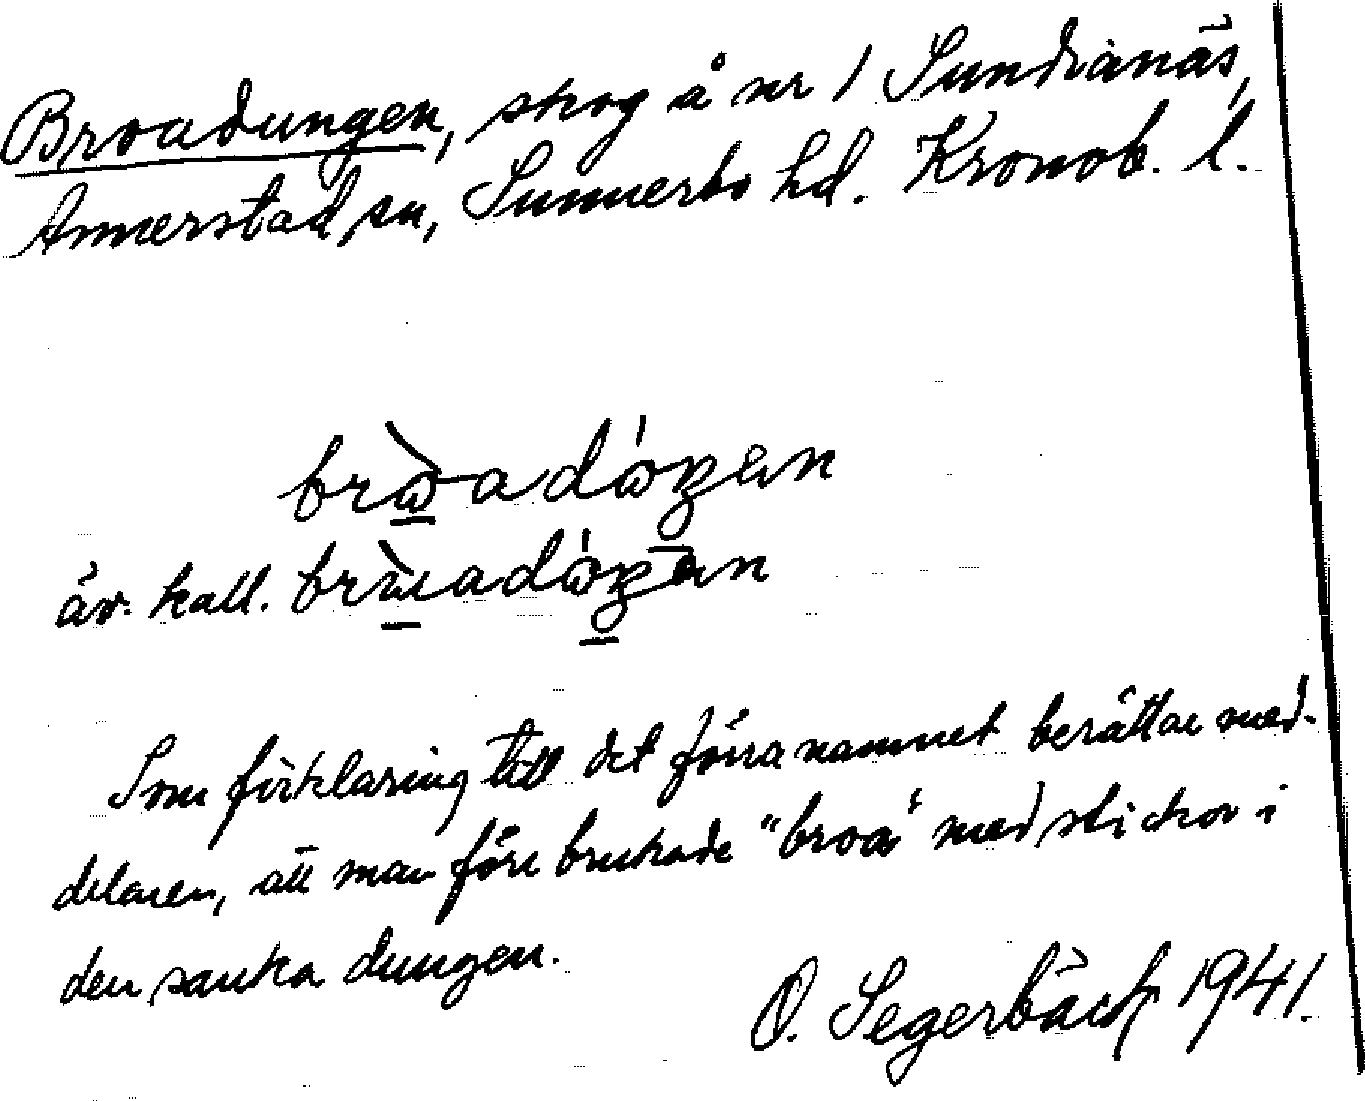 Broadungen, skog å nr 1 Sundranäs,
Annerstad sn, Sunnerbo hd. Kronob. l.
äv. kall.
Som förklaring till det förra namnet berättar med-
delaren, att man förr brukade "broa" med stickor i
den sanka dungen.
O. Segerbäck 1941.